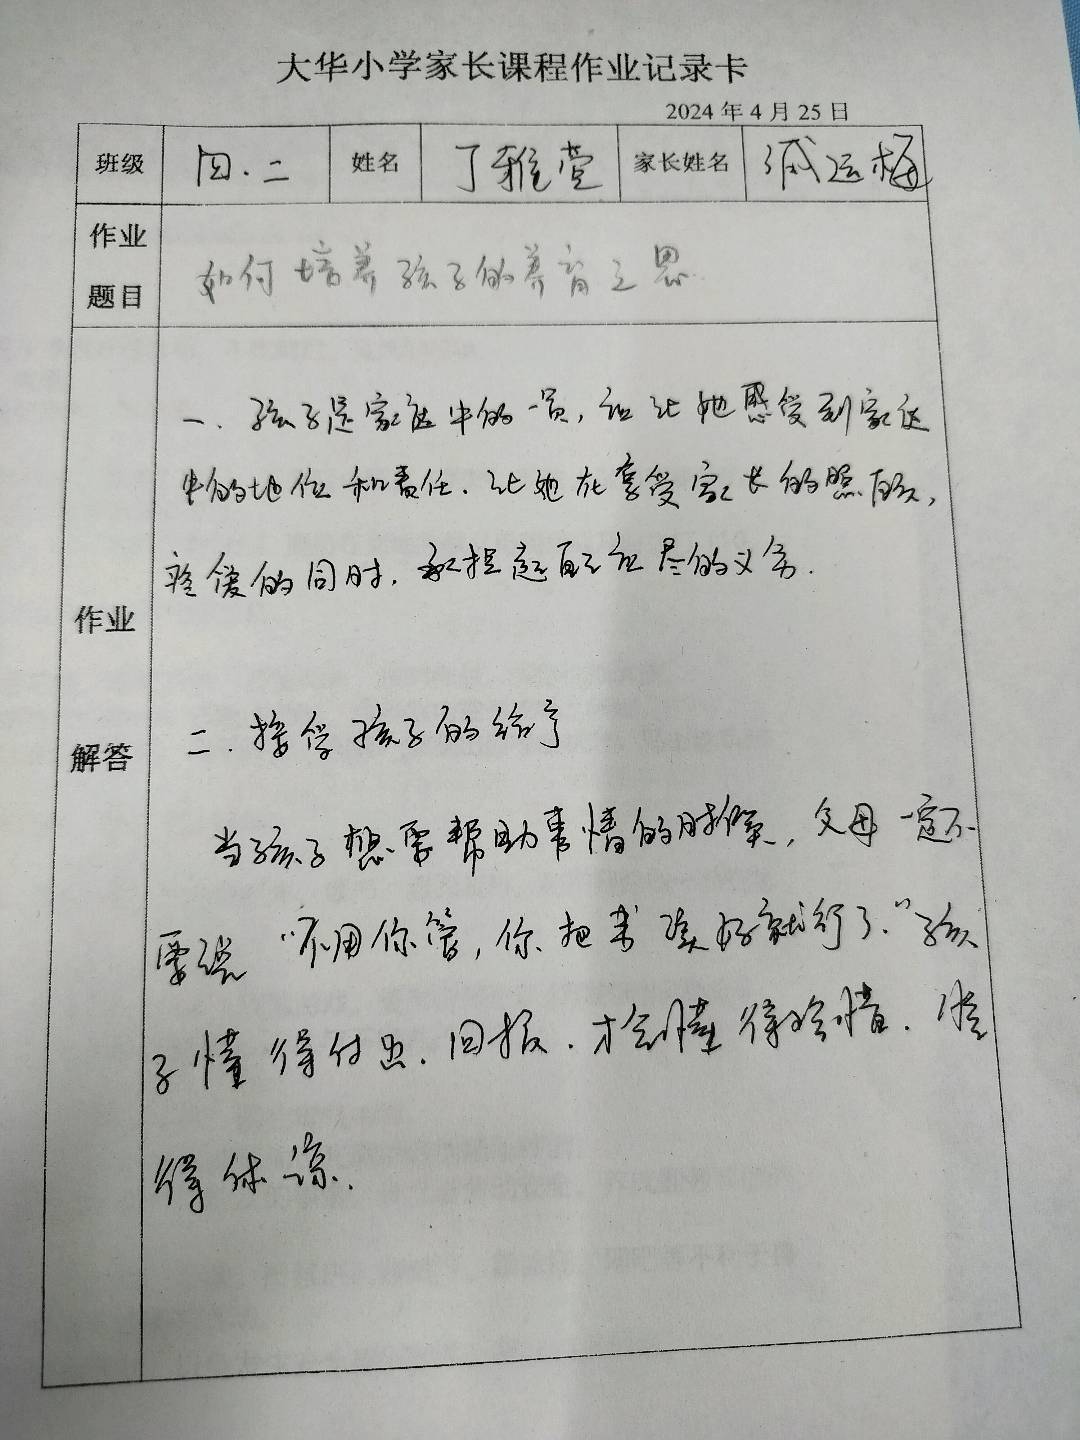 大华小学家长课程作业记录卡
2024年4月25日
班级 四.二 姓名 丁雅萱 家长姓名 运梅
作业
题目
如何培养孩子的养育之恩
作业
解答
一.孩子是家庭中的一员,应让她感受到家庭
中的地位和责任.让她在享受家长的照顾,
疼爱的同时.承担起自己应尽的义务.
二.接受孩子的给予
当孩子想要帮助事情的时候,父母一定不
要说"不用你管,你把书读好就行了."孩
子懂得付出.回报.才会懂得珍惜.懂
得体谅.